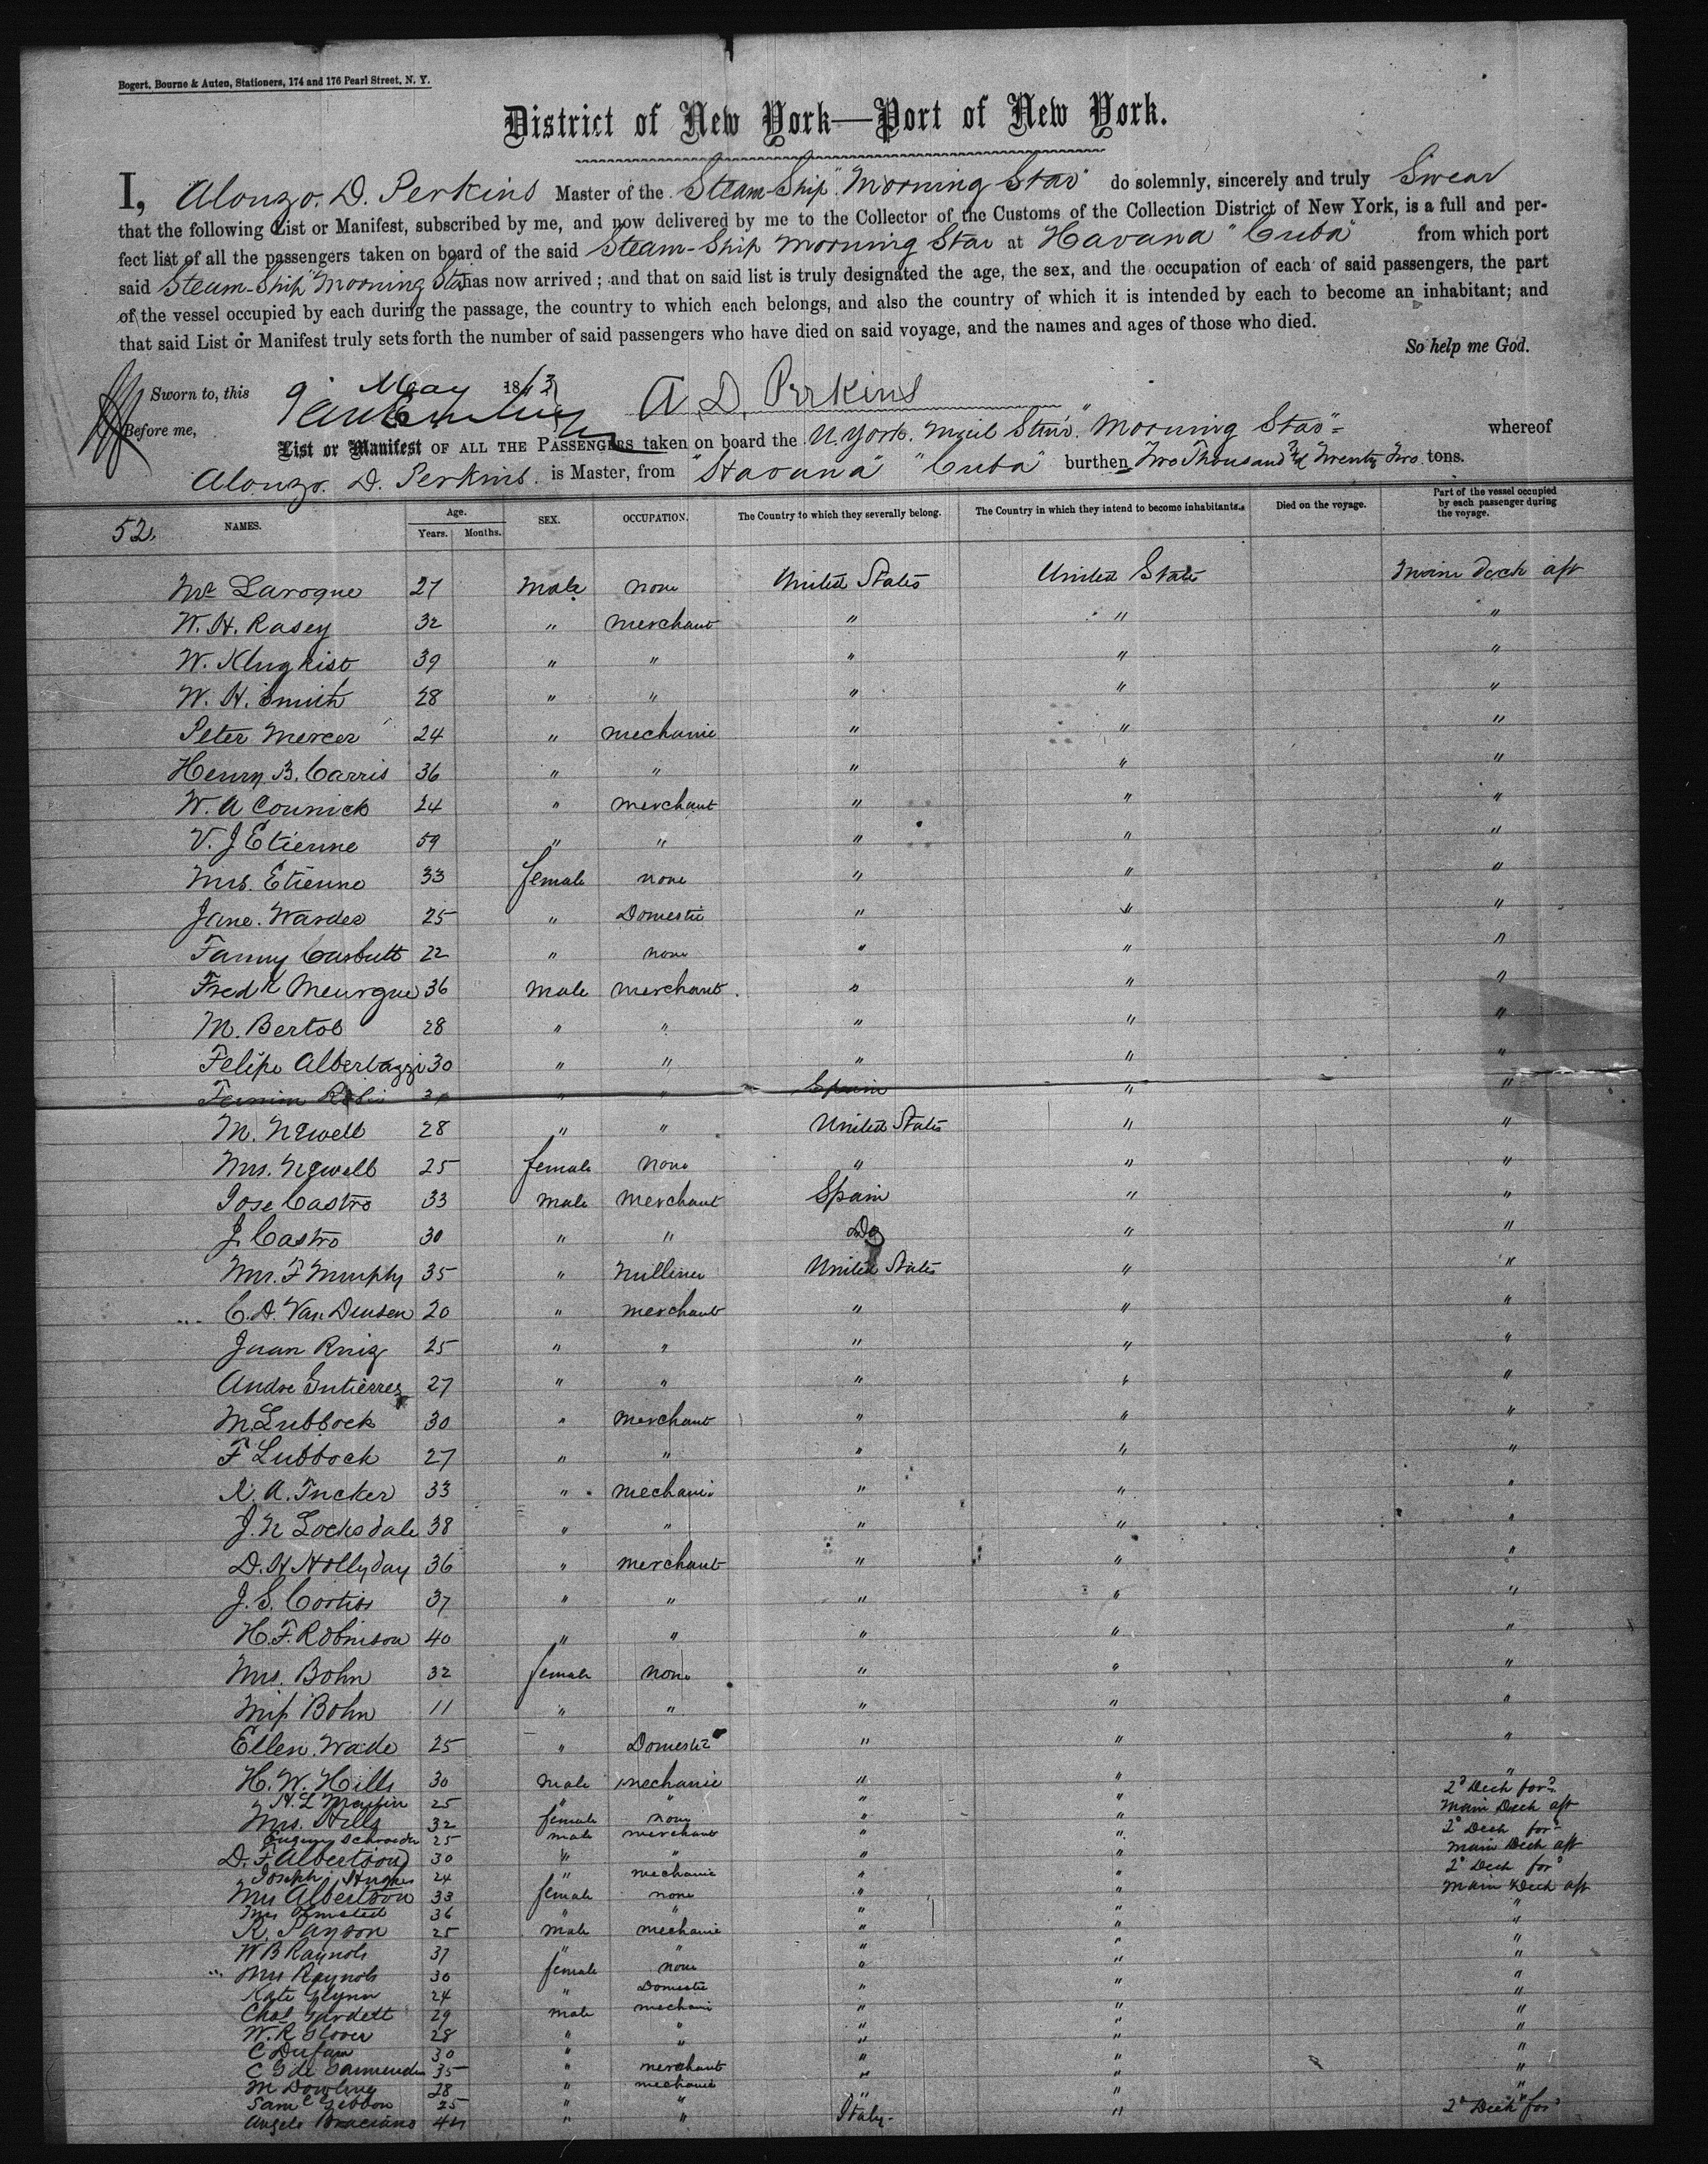 Bogert, Bourne & Auten, Stationers, 174 and 176 Pearl Street, N. Y.
District of New York—Port of New York.
I, Alonzo. D. Perkins Master of the Steam-Ship "Morning Star" do solemnly, sincerely and truly Swear
that the following List or Manifest, subscribed by me, and now delivered by me to the Collector of the Customs of the Collection District of New York, is a full and per-
fect list of all the passengers taken on board of the said Steam-Ship Morning Star at Havana "Cuba" from which port
said Steam-Ship "Morning Star has now arrived; and that on said list is truly designated the age, the sex, and the occupation of each of said passengers, the part
of the vessel occupied by each during the passage, the country to which each belongs, and also the country of which it is intended by each to become an inhabitant; and
that said List or Manifest truly sets forth the number of said passengers who have died on said voyage, and the names and ages of those who died.
So help me God.
Sworn to, this 9" May 1863
A. D. Perkins
Before me,
List or Manifest OF ALL THE PASSENGERS taken on board the N. York. Mail Stmr. "Morning Star" whereof
Alonzo. D. Perkins. is Master, from "Havana" "Cuba" burthen Two Thousand & Twenty Two tons.
52. NAMES. Age. Years. Months. SEX. OCCUPATION. The Country to which they severally belong. The Country in which they intend to become inhabitants. Died on the voyage. Part of the vessel occupied by each passenger during the voyage.
Mr Laroque 27 Male none United States United States Main Deck aft
W. H. Rasey 32 " merchant " " "
W. Klugkist 39 " " " " "
W. H. Smith 28 " " " " "
Peter Mercer 24 " mechanic " " "
Henry B. Carris 36 " " " " "
W. A Cornick 24 " merchant " " "
V. J Etienne 59 " " " " "
Mrs. Etienne 33 female none " " "
Jane. Warder 25 " Domestic " " "
Fanny Casbutt 22 " none " " "
Fredk Meurgue 36 male merchant " " "
M. Bertob 28 " " " " "
Felipe Albertazzi 30 " " " " "
" " Spain " "
M. Newell 28 " " United States " "
Mrs. Newell 25 female none " " "
Jose Castro 33 male merchant Spain " "
J. Castro 30 " " Do " "
Mrs. F Murphy 35 " Milliner United States " "
C. D. Van Deusen 20 " merchant " " "
Juan Ruiz 25 " " " " "
Andre Gutierrez 27 " " " " "
M. Lubbock 30 " merchant " " "
F Lubbock 27 " " " " "
R. A. Tucker 33 " mechanic " " "
J. N Locksdale 38 " " " " "
D. H Hollyday 36 " merchant " " "
J. S. Cortiss 37 " " " " "
H. F. Robinson 40 " " " " "
Mrs. Bohn 32 female none " " "
Miss Bohn 11 " " " " "
Ellen. Wade 25 " Domestic " " "
H. W. Hills 30 male mechanic " " "
H. L Martin 25 " " " " 2d Deck for'd
Mrs. Hills 32 female none " " Main Deck aft
Eugene Schroeder 25 male merchant " " 2d Deck for'd
D. F Albertson 30 " " " " Main Deck aft
Joseph Hughes 24 " mechanic " " 2d Deck for'd
Mrs Albertson 33 female none " " Main Deck aft
Mrs Olmsted 36 " " " " "
R. Payson 25 male mechanic " " "
W B Raynols 37 " " " " "
Mrs Raynols 30 female none " " "
Kate Glynn 24 " Domestic " " "
Chas Burdett 29 male mechanic " " "
W. R Glover 28 " " " " "
C Dufau 30 " " " " "
C G de Garmendia 35 " merchant " " "
M Dowling 28 " mechanic " " "
Saml Gibbon 25 " " " " "
Angelo Braciano 44 " " Italy. " 2d Deck for'd